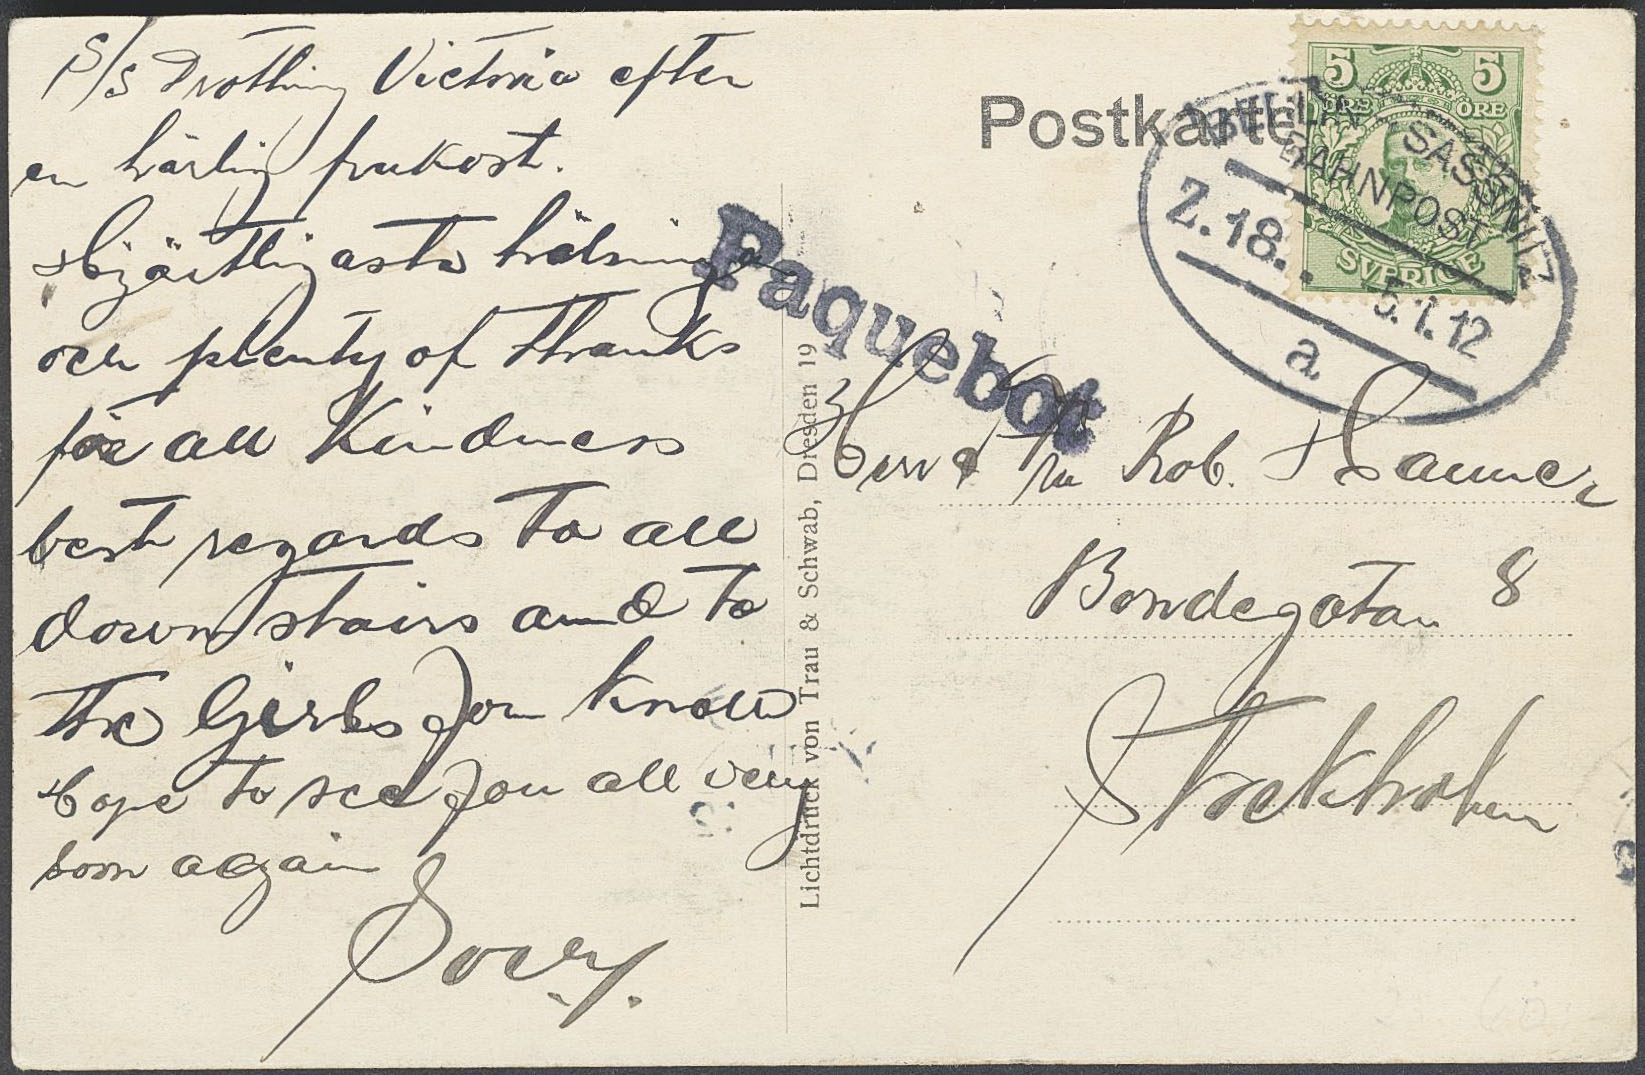 S/S Drottning Victoria efter
en härlig frukost.
Hjärtligaste hälsningar
och plenty of thanks
för all Kindness
best regards to all
down stairs and to
the Girls you know
hope to see you all very
soon again
Postkarte
Paquebot
5 5
ÖRE ÖRE
SVERIGE
BERLIN SASSNITZ
BAHNPOST
Z.18. 5.1.12
a.
Lichtdruck von Trau & Schwab, Dresden 19
Rob.
Bondegatan 8
Stockholm